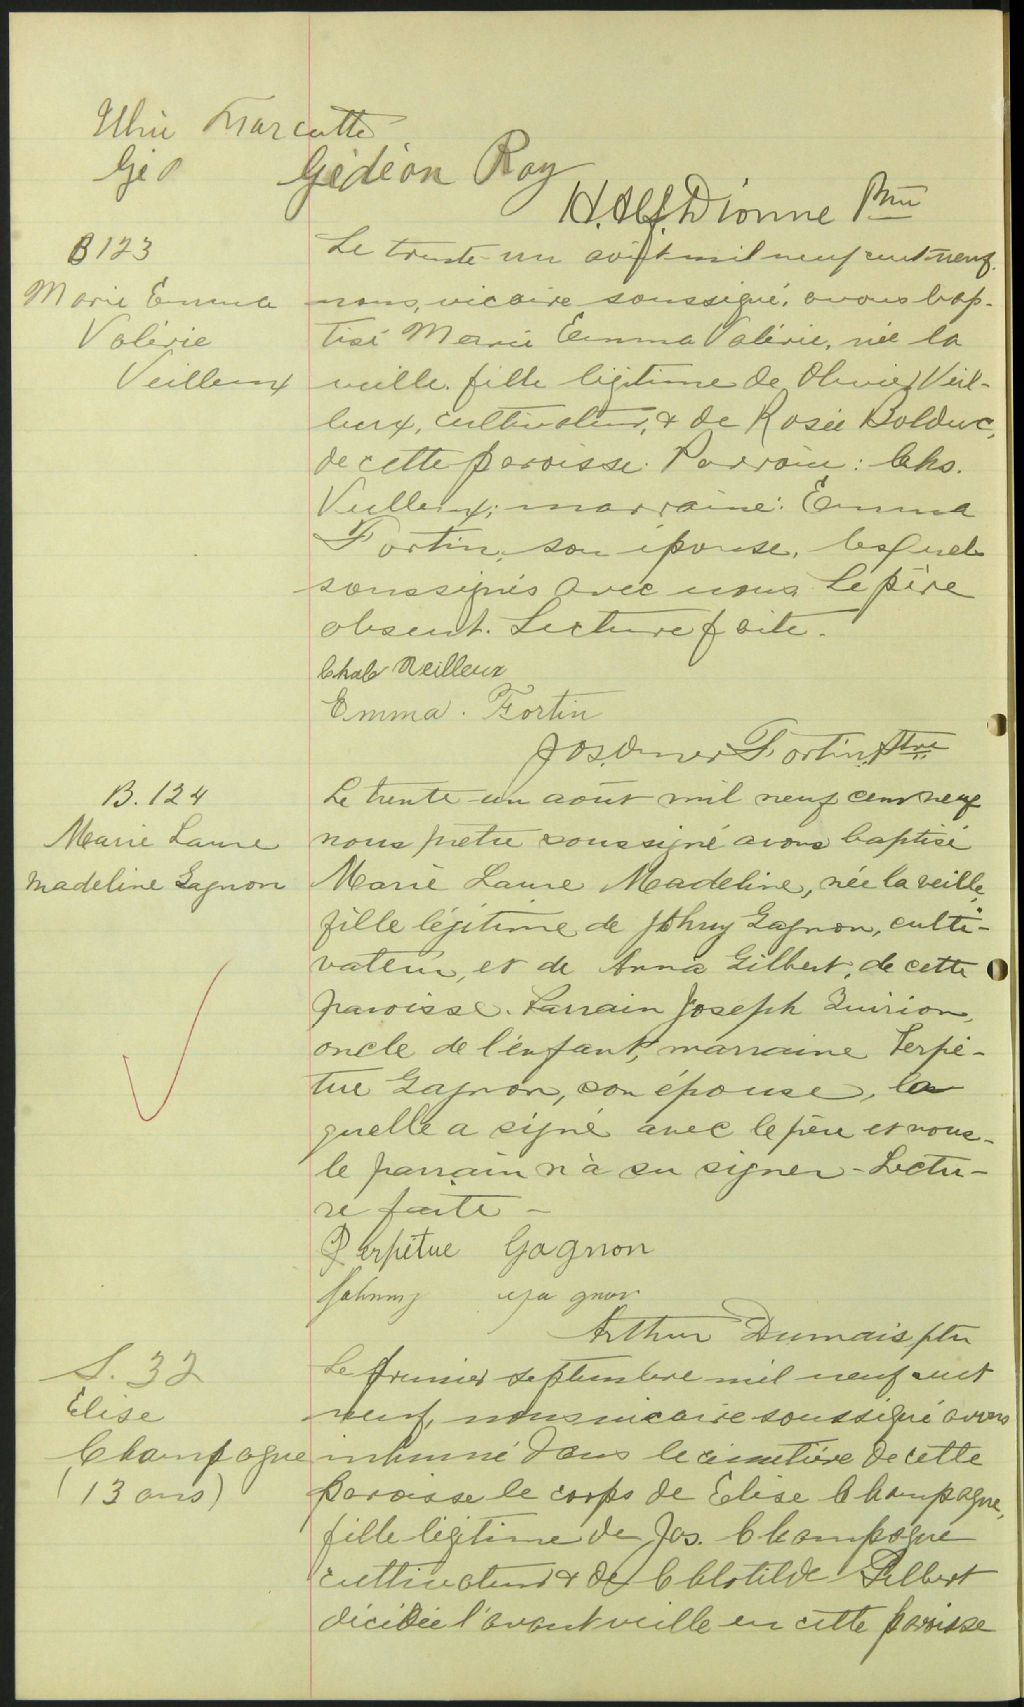 Marcotte
Gé Gédéon Roy
H. Alf. Dionne Ptre
B 123
Marie Emma
Valérie
Veilleux
Le trente-un août mil neuf cent-neuf.
nous, vicaire soussigné, avons bap-
tisé Marie Emma Valérie, née la
veille, fille légitime de Olivier Veil-
leux, cultivateur, & de Rosée Bolduc,
de cette paroisse. Parrain: Chs.
Veilleux; marraine: Emma
Fortin, son épouse, lesquels
soussignés avec nous. Le père
absent. Lecture faite.
Chals Veilleux
Emma. Fortin
Jos. Omer Fortin, Ptre
B. 124
Marie Laure
Madeline Gagnon
Le trente-un août mil neuf cent neuf
nous prêtre soussigné avons baptisé
Marie Laure Madeline, née la veille,
fille légitime de Johny Gagnon, culti-
vateur, et de Anna Gilbert, de cette
paroisse. Parrain Joseph Quirion,
oncle de l'enfant, marraine Perpé-
tue Gagnon, son épouse, la
quelle a signé avec le père et nous-
le parrain n'a su signer - Lectu-
re faite -
Perpétue Gagnon
Johnny Gagnon
Arthur Dumais ptre
S. 32
Elise
Champagne
(13 ans)
Le premier septembre mil neuf cent
neuf, nous vicaire soussigné avons
inhumé dans le cimetière de cette
paroisse le corps de Elise Champagne,
fille légitime de Jos. Champagne
cultivateur & de Clotilde Gilbert
décédée l'avant veille en cette paroisse